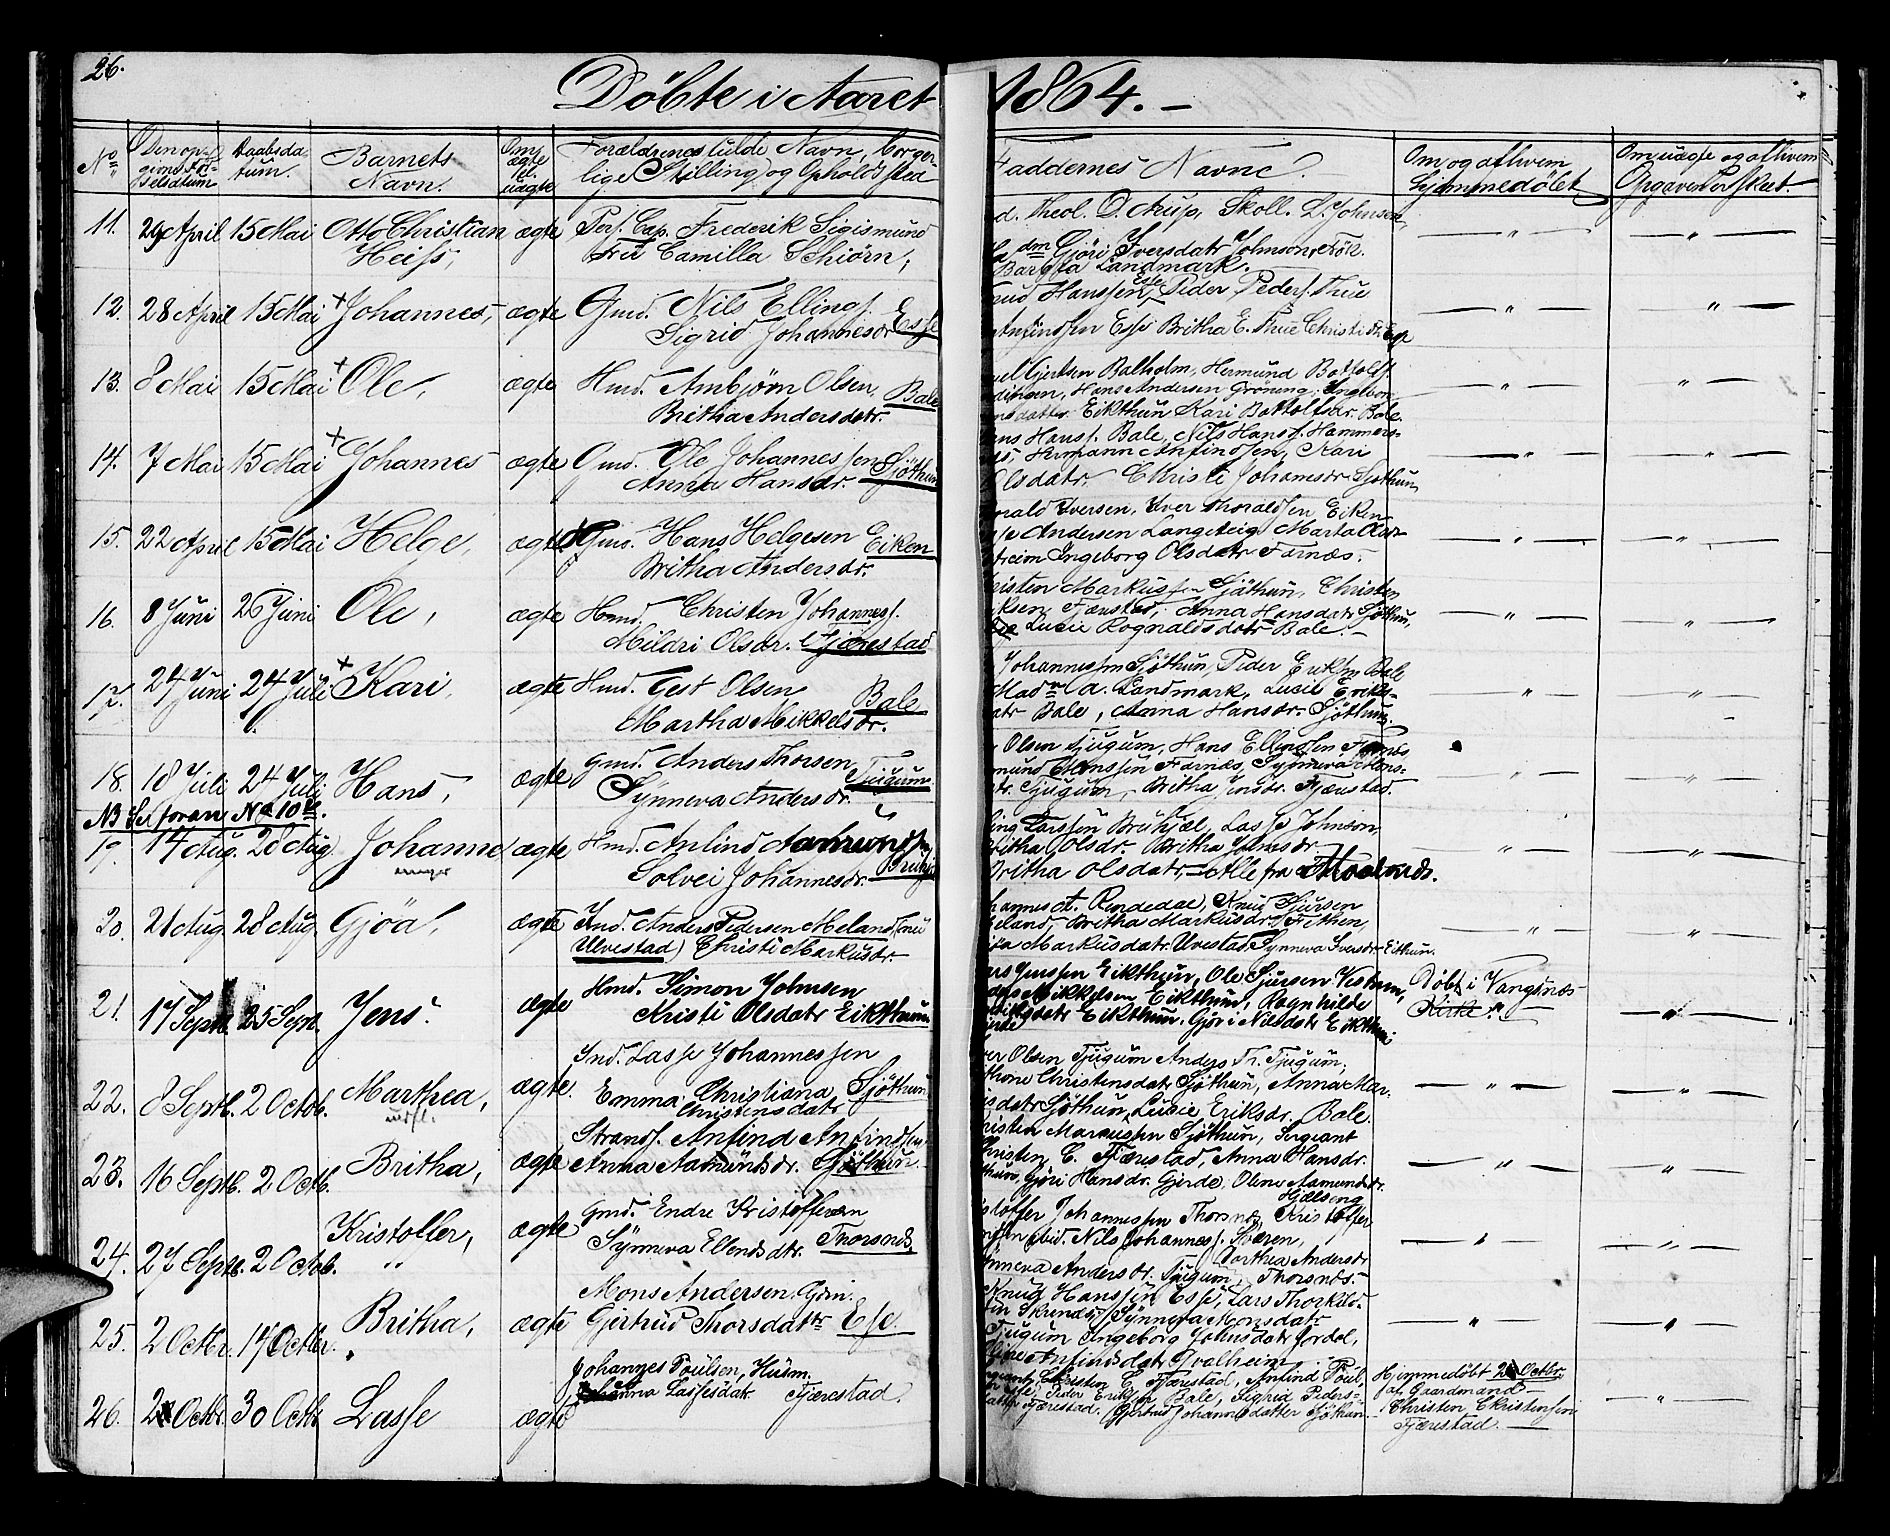 26.
Döbte i Aaret 1864.-
No
Den op-
givne Fö-
delsdatum
Daabsda-
tum.
Barnets
Navn.
Om
ægte
el.
uægte
Forældrenes fulde Navn, borger-
lige Stilling og Opholdssted
Faddernes Navne.
Om og af hvem
hjemmedöbt
Om uægte og af hvem
Opgaven er skeet.
11. 24 April 15 Mai Otto Christian ægte Perf. Cap. Frederik Sigismund
Heiss, Frü Camilla Schiörn,
d. Theol. D. Strup, Skoll. L. Johnsen,
dm Gjöri Iversdatr Johnson, Frök.
Landmark.
12. 28 April 15 Mai Johannes, ægte Gmd. Nils Ellings.
Sigrid Johannesdr Esse
nud Hanssen Esse, Peder Peders. Thue
Anfindsen Esse Britha E. Thue Christi
13. 8 Mai 15 Mai Ole, ægte Hmd. Ambjörn Olsen, Bale
Britha Andersdatr.
uel Gjertsen Balholm, Hermund Bottolfs.
Hans Andersen Gröning, Ingebor
nsdattr Eikthun Kari Bottolfsdr. Bale
14. 7 Mai 15 Mai Johannes ægte Gmd. Ole Johannessen Sjöthun
Anna Hansdr.
ns Hans. Bale, Nils Hans. Hammers-
Hermann Anfindsen, Kari
Olsdatr. Christi Johannesdr Sjöthun
15. 22 April 15 Mai Helge, ægte Gmd. Hans Helgesen Eiken
Britha Andersdr.
Iversen, Iver Thoraldsen Eiken
Andersen Langeteig Marta
Ingeborg Olsdatr Farnæs.
16. 8 Juni 26 Juni Ole, ægte Hmd. Christen Johannes.
Mildri Olsdr. Fjærestad
risten Markussen Sjöthun, Christen
iksen Fjærestad, Anna Hansdatr Sjöthun,
Lucie Rognaldsdatr Bale.-
17. 24 Juni 24 Juli Kari, ægte Hmd. Gest Olsen Bale
Martha Mikkelsdr.
Johannessen Sjöthun, Peder Eriksen Bale
Madm A. Landmark, Lucie Eriks-
datr Bale, Anna Hansdr. Sjöthun.
18. 18 Juli 24 Juli Hans, ægte Gmd. Anders Thorsen Tjugum
Synneva Andersdr.
Olsen Tjugum, Hans Ellendsen Farnæs
mund Hanssen Farnæs, Synneva Hans-
dr. Tjugum, Britha Jensdr. Fjærestad.
NB Se foran No 10de.
19. 14 Aug. 28 Aug. Johanne ægte Hmd. Anfind Aamundsen
Solvei Johannesdr.
ling Larssön Bruhjæl, Lasse Johnson
Britha Olsdr. Britha Johnsdr
Britha Olsdatr - Alle fra
20. 21 Aug 28 Aug. Gjöa, ægte Ind. Anders Pedersen Meland (nu
Ulvestad) Christi Markusdr.
hannes A. Rendedal, Knud Sjursen
eland, Britha Markusdr. Fithen,
Markusdatr Ulvestad Synneva Iversdr Eithun.
21. 17 Sept. 25 Sept. Jens. ægte Hmd. Simon Johnsen
Kristi Olsdatr Eikthun
ars Jenssen Eikthun, Ole Sjursen Vestrum,
Mikkelsen Eikthun, Ragnhilde
datr Eikthun. Gjöri Nilsdatr Eikthun
Döbt i Vangsnæs
Kirke.
22. 8 Septb. 2 Octob. Marthea, ægte. Ind. Lasse Johannessen
Emma Christiana Sjöthun
Christensdatr
ver Olsen Tjugum Anders Th. Tjugum,
Christensdatr Sjöthun, Anna Mar-
datr Sjöthun, Lucie Eriksdr. Bale.
23. 16 Septb. 2 Octb. Britha, ægte Strands. Anfind Anfindsen
Anna Aamundsdr. Sjöthun
risten Marcussen Sjöthun, Sergeant
Christen C. Fjærestad, Anna Hansdr.
thun, Gjöri Hansdr. Gjerde, Oline Aamundsdr.
24. 27 Septb. 2 Octob. Kristoffer, ægte Gmd. Endre Kristoffersen
Synneva Ellendsdtr. Thorsnæs
istoffer Johannessen Thorsnæs, Kristoffer
ibid. Nils Johannes. Sværen,
nneva Andersdr. Tjugum, Dorthea Andersdr
Thorsnæs.
25. 2 Octbr. 17 Octbr. Britha, ægte Mons Andersen, Gdm.
Gjertrud Thorsdattr Esse.
Knud Hanssen Esse, Lars Thorkild-
Synneva Monsdatr
Tjugum Ingeborg Johnsdatr Jordal,
Anfindsdatr Qvalheim
26. Octbr. 30 Octb. Lasse ægte Johannes Poulsen, Husm.
Lassesdatr. Fjærestad.
Christen C. Fjærestad, Anfind Poul
Peder Eriksen Bale, Sigrid Peders-
datter Fjærestad. Gjertrud Johannesdatter Sjöthun.
Hjemmedöbt Octbr.
af Gaardmand
Christen Christensen
Fjærestad.